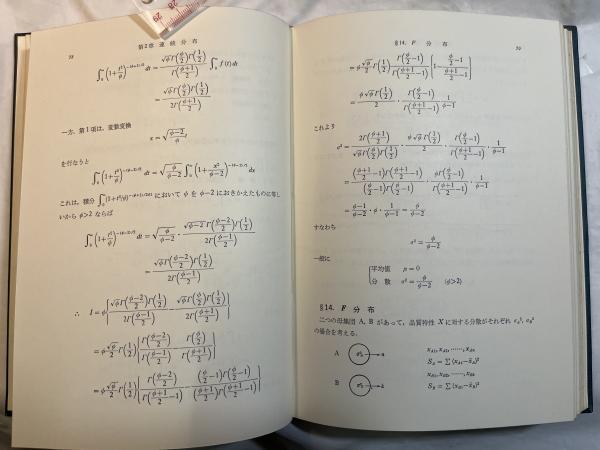 58
第2章 連続分布
∫₀ (1+t²/φ)^(-(φ+1)/2) dt = √φ Γ(φ/2)Γ(1/2) / Γ((φ+1)/2) ∫₀ f(t)dt
= √φ Γ(φ/2)Γ(1/2) / 2Γ((φ+1)/2)
一方，第1項は，変数変換
を行なうと
これは，積分
において φ を φ−2 におきかえたものに等し
いから φ>2 ならば
= √φ Γ((φ-2)/2)Γ(1/2) / 2Γ((φ-1)/2)
∴ I=φ{√φ Γ((φ-2)/2)Γ(1/2) / 2Γ((φ-1)/2) − √φ Γ(φ/2)Γ(1/2) / 2Γ((φ+1)/2)}
=φ √φ/2 Γ(1/2){Γ((φ-2)/2) / Γ((φ-1)/2) − Γ(φ/2) / Γ((φ+1)/2)}
=φ √φ/2 Γ(1/2){Γ((φ-2)/2) / Γ((φ+1)/2 −1) − (φ/2 −1)Γ(φ/2 −1) / ((φ+1)/2 −1)Γ((φ+1)/2 −1)}
§14. F 分布
59
=φ √φ/2 Γ(1/2) Γ(φ/2 −1) / Γ((φ+1)/2 −1) {1 − (φ/2 −1) / ((φ+1)/2 −1)}
= φ√φ Γ(1/2) / 2 · Γ(φ/2 −1) / Γ((φ+1)/2 −1) · 1/(φ−1)
これより
σ² = 2Γ((φ+1)/2) / √φ Γ(φ/2)Γ(1/2) · φ√φ Γ(1/2) / 2 · Γ(φ/2 −1) / Γ((φ+1)/2 −1) · 1/(φ−1)
= ((φ+1)/2 −1)Γ((φ+1)/2 −1) / (φ/2 −1)Γ(φ/2 −1) · φΓ(φ/2 −1) / Γ((φ+1)/2 −1) · 1/(φ−1)
= (φ−1)/(φ−2) · φ · 1/(φ−1) = φ/(φ−2)
すなわち
σ² = φ/(φ−2)
一般に
平均値 μ=0
分 散 σ² = φ/(φ−2) (φ>2)
§14. F 分布
二つの母集団 A, B があって，品質特性 X に対する分散がそれぞれ σ_A², σ_B²
の場合を考える．
A
S_A = Σ(x_Ai−x̄_A)²
B
S_B = Σ(x_Bi−x̄_B)²